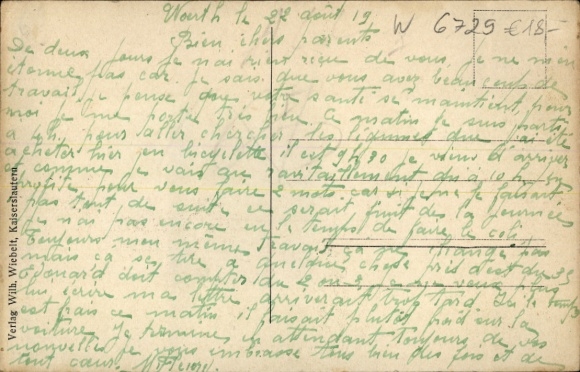 Woerth le 22 août 19
W 6729 €18-
Bien chers parents
De deux jours je n'ai rien reçu de vous, je ne m'en
étonne pas car je sais que vous avez beaucoup de
travail je pense que votre santé se maintient, pour
moi je me porte très bien. Ce matin je suis parti
à 4h pour aller chercher les légumes que j'ai été
acheter hier en bicyclette il est 9h30 je viens d'arriver
et comme je vais au ravitaillement dès à 10 h j'en
profite pour vous faire 2 mots car si je ne le faisait
pas tout de suite ce serait finit dès la journées
Je n'ai pas encore eu le temps de faire le colis
Toujours mon même travail ça ne change pas
mais ça se tire à quelque chose près c'est du 35
Edouard doit compter du 2 ou 3 je ne veux pas
lui écrire ma lettre arriverait trop tard Ici le temps
est frais ce matin il faisait plutôt froid sur la
voiture Je termine en attendant toujours de vos
nouvelles je vous embrasse tous bien des fois et de
tout cœur.
Verlag Wilh. Wiebelt, Kaiserslautern